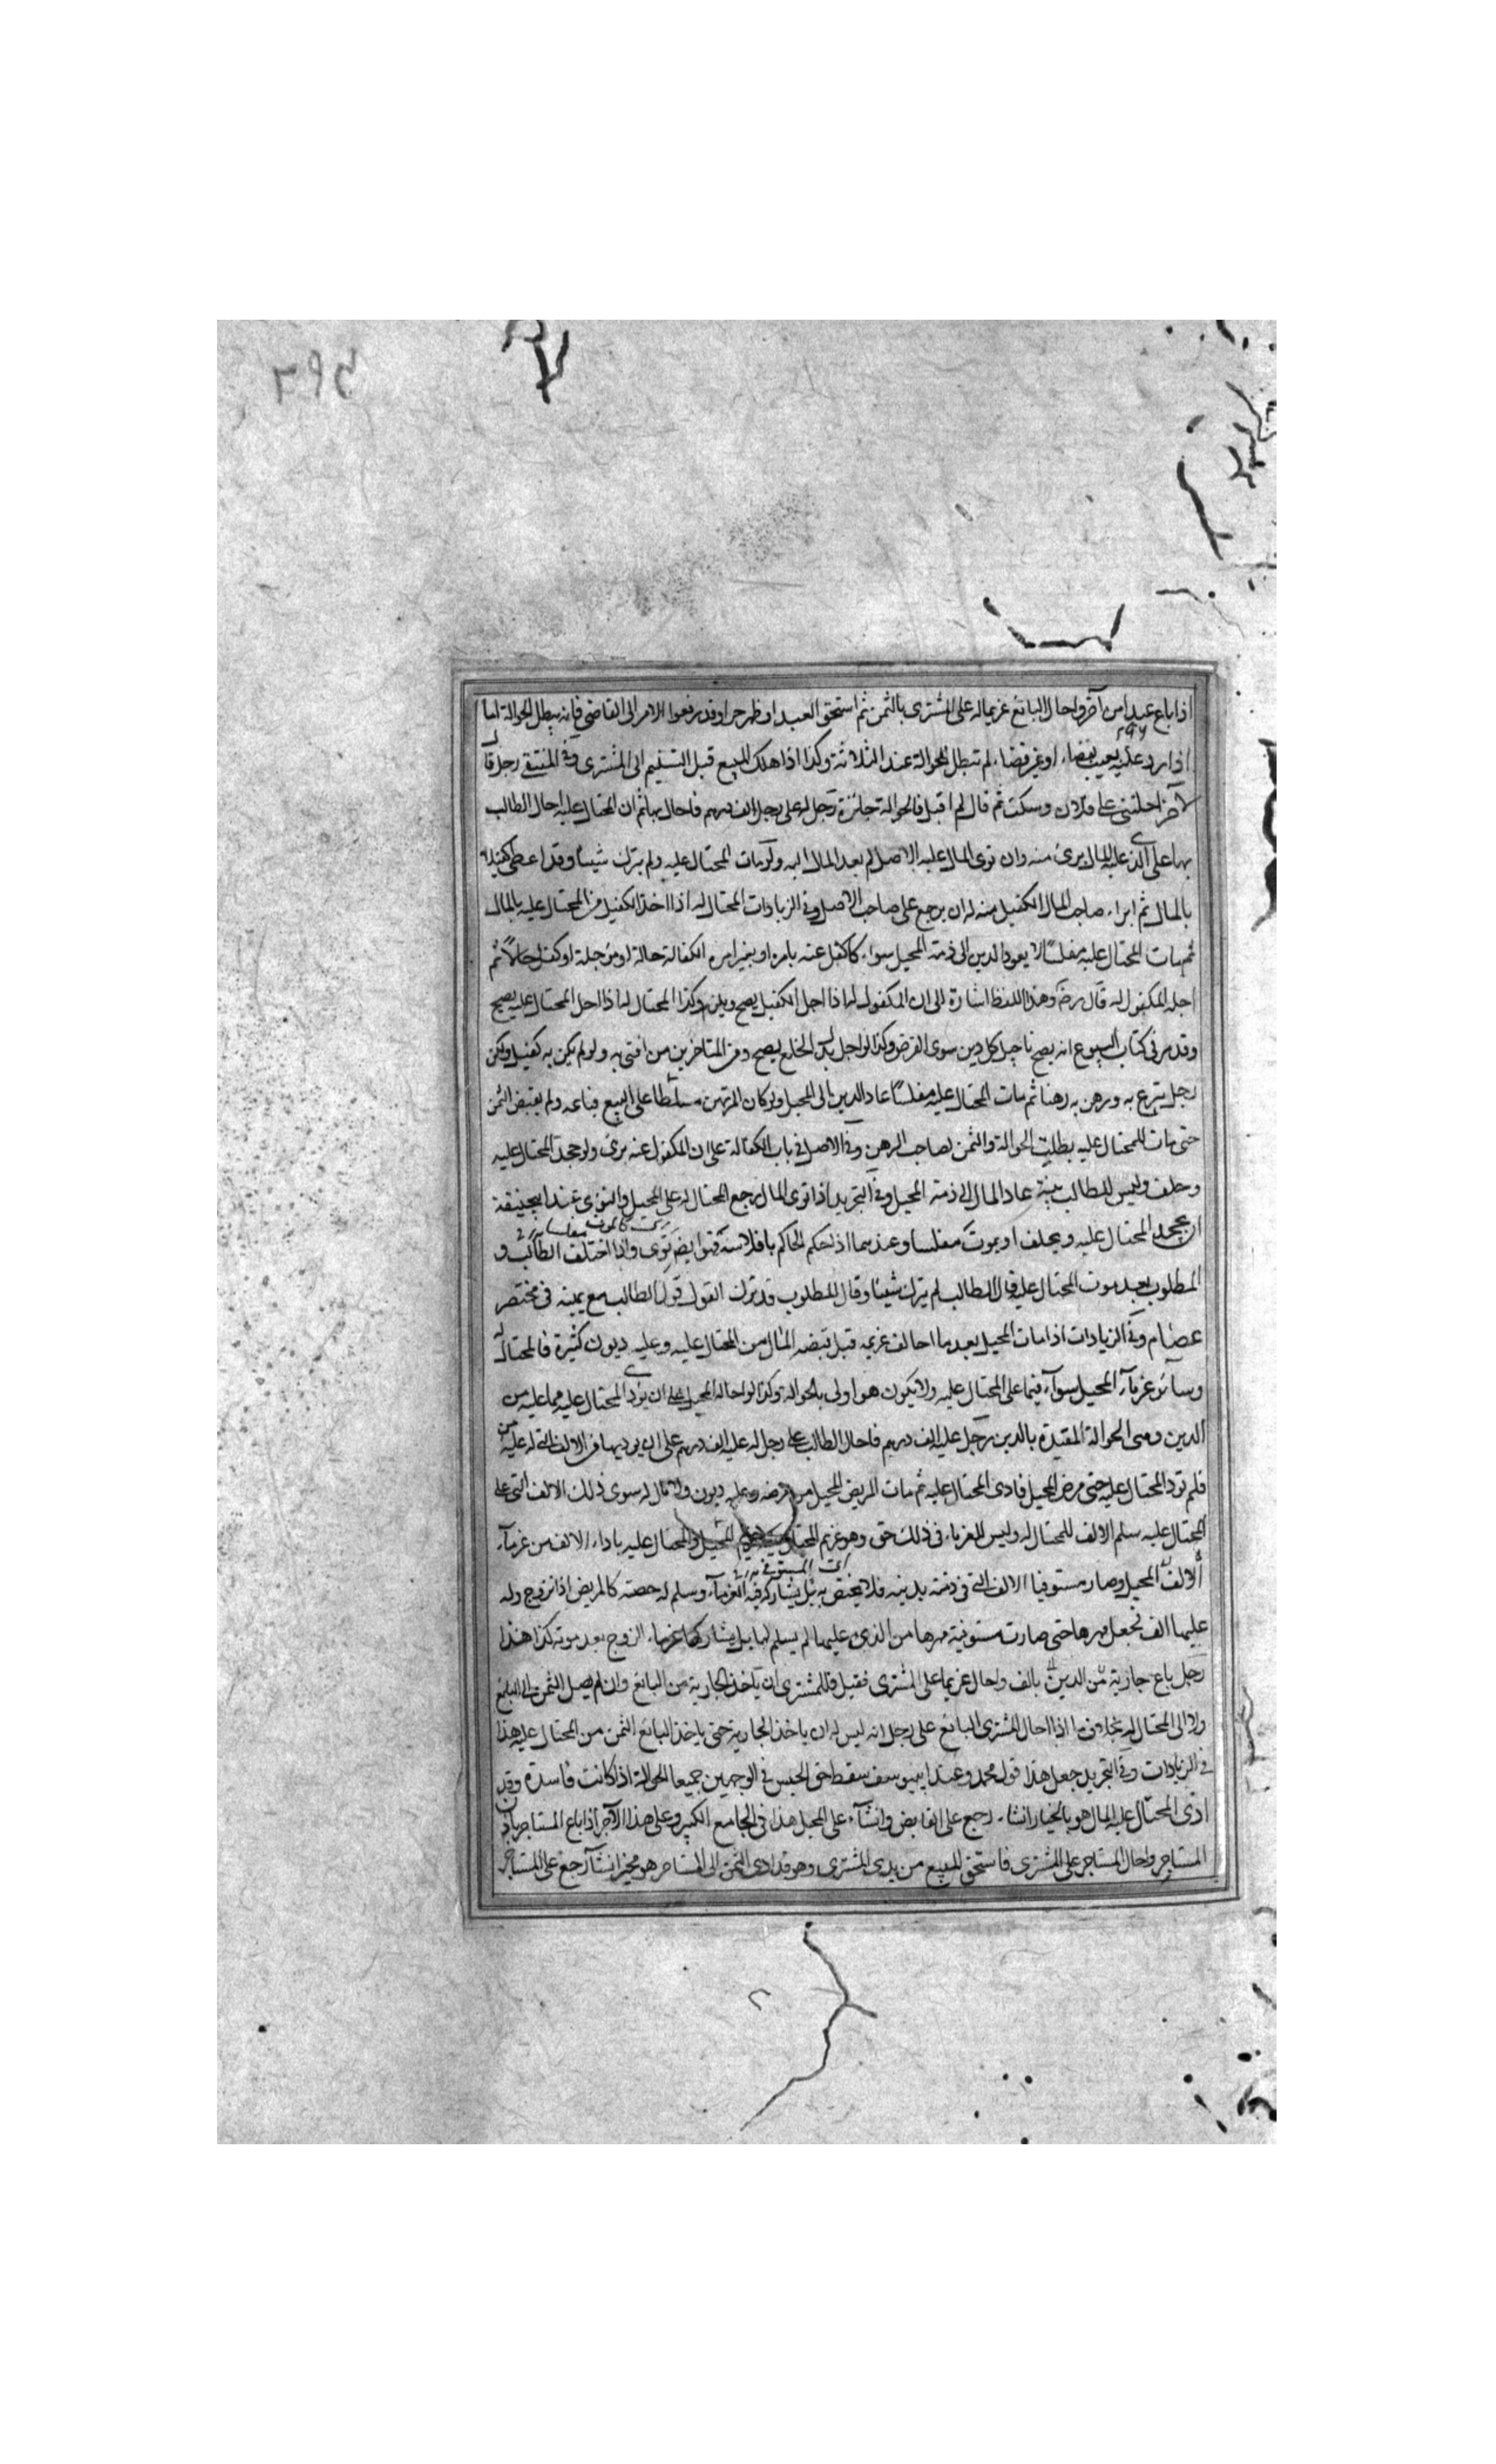 اذا باع عبدا من آخر واحال البائع غريما له على المشترى بالثمن ثم استحق العبد او ظهر حرا وقد رفعوا الامر الى القاضى فانه يبطل الحوالة اما
اذا رد عليه بعيب بقضاء او غير قضاء لم تبطل الحوالة عند الثلاثة وكذا اذا هلك المبيع قبل التسليم الى المشترى وفى المنتقى رجل قال
لآخر احلتنى على فلان وسكت ثم قال لم اقبل فالحوالة جائزة رجل له على رجل الف درهم فاحال بها ثم ان المحتال عليه احال الطالب
بها على الذى عليه المال برئ منه وان توى المال عليه الاصل لم يعد المال اليه ولو مات المحتال عليه ولم يترك شيئا وقد اعطى كفيلا
بالمال ثم ابراء صاحب المال الكفيل منه له ان يرجع على صاحب الاصل وفى الزيادات المحتال له اذا اخذ الكفيل من المحتال عليه بالمال
ثم مات المحتال عليه مفلسًا لا يعود الدين الى ذمة المحيل سواء كا كفل عنه بامره او بغير امره الكفالة حالة او مؤجلة او كفل حالاً ثم
اجله المكفول له قال رضـ وهذا اللفظ اشارة الى ان المكفول له اذا اجل الكفيل يصح ويلزم وكذا المحتال له اذا اجل المحتال عليه يصح
وقد مر فى كتاب البيوع انه يصح تاجيل كل دين سوى القرض وكذا لو اجل بدل الخلع يصح ومن المتاخرين من افتى به ولو لم يكن به كفيل ولكن
رجل تبرع به ورهن به رهنا ثم مات المحتال عليه مفلسًا عاد الدين الى المحيل ولو كان المرتهن مسلطا على البيع فباعه ولم يقبض الثمن
حتى مات المحتال عليه بطلت الحوالة والثمن لصاحب الرهن وفى الاصل فى باب الكفالة على ان المكفول عنه برئ ولو جحد المحتال عليه
وحلف وليس للطالب بينة عاد المال الى ذمة المحيل وفى التجريد اذا توى المال رجع المحتال له على المحيل والتوى عند ابيحنيفة
ان يجحد المحتال عليه ويحلف او يموت مفلسا وعندهما اذا حكم الحاكم بافلاسه فهو ايضا توى واذا اختلف الطالب و
المطلوب بعد موت المحتال عليه قال الطالب لم يترك شيئا وقال المطلوب قد ترك القول قول الطالب مع يمينه فى مختصر
عصام وفى الزيادات اذا مات المحيل بعد ما احال غريمه قبل قبضه المال من المحتال عليه وعليه ديون كثيرة فالمحتال له
وسائر غرماء المحيل سواء فيما على المحتال عليه ولا يكون هو اولى بالحوالة وكذا لو احاله المحيل على ان يؤدى المحتال عليه مما عليه من
الدين وهى الحوالة المقيدة بالدين رجل عليه الف درهم فاحال الطالب على رجل له عليه الف درهم على ان يوديها من الالف التى له عليه
فلم يؤد المحتال عليه حتى مرض المحيل فادى المحتال عليه ثم مات المريض المحيل من مرضه وعليه ديون ولا مال له سوى ذلك الالف التى على
المحتال عليه سلم الالف للمحتال له وليس للغرماء فى ذلك حق وهو غريم المحيل والمحتال عليه باداء الالف من غرماء
المحيل وصار مستوفيا الالف التى فى ذمته بدينه فلا يختص به بل يشاركه فيه الغرماء وسلم له حصته كالمريض اذا تزوج وله
عليها الف فجعل مهرها حتى صارت مستوفية مهرها من الذى عليها لم يسلم لها بل يشاركها غرماء الزوج بعد موته كذا هذا
رجل باع جارية من الدين بالف واحال غريما على المشترى فقيل فللمشترى ان ياخذ الجارية من البائع وان لم يصل الثمن الى البائع
ولا الى المحتال له بخلاف ما اذا احال المشترى البائع على رجل انه ليس له ان ياخذ الجارية حتى ياخذ البائع الثمن من المحتال عليه هذا
فى الزيادات وفى التجريد جعل هذا قول محمد وعند ابييوسف سقط حق الحبس فى الوجهين جميعا الحوالة اذا كانت فاسدة وقد
ادى المحتال عليه المال هو بالخيار ان شاء رجع على القابض وان شاء على المحيل هذا فى الجامع الكبير وعلى هذا الآجر اذا باع المستاجر باذن
المستاجر واحال المستاجر على المشترى فاستحق المبيع من يدى المشترى وهو قد ادى الثمن الى المستاجر هو مخير ان شاء رجع على المستاجر